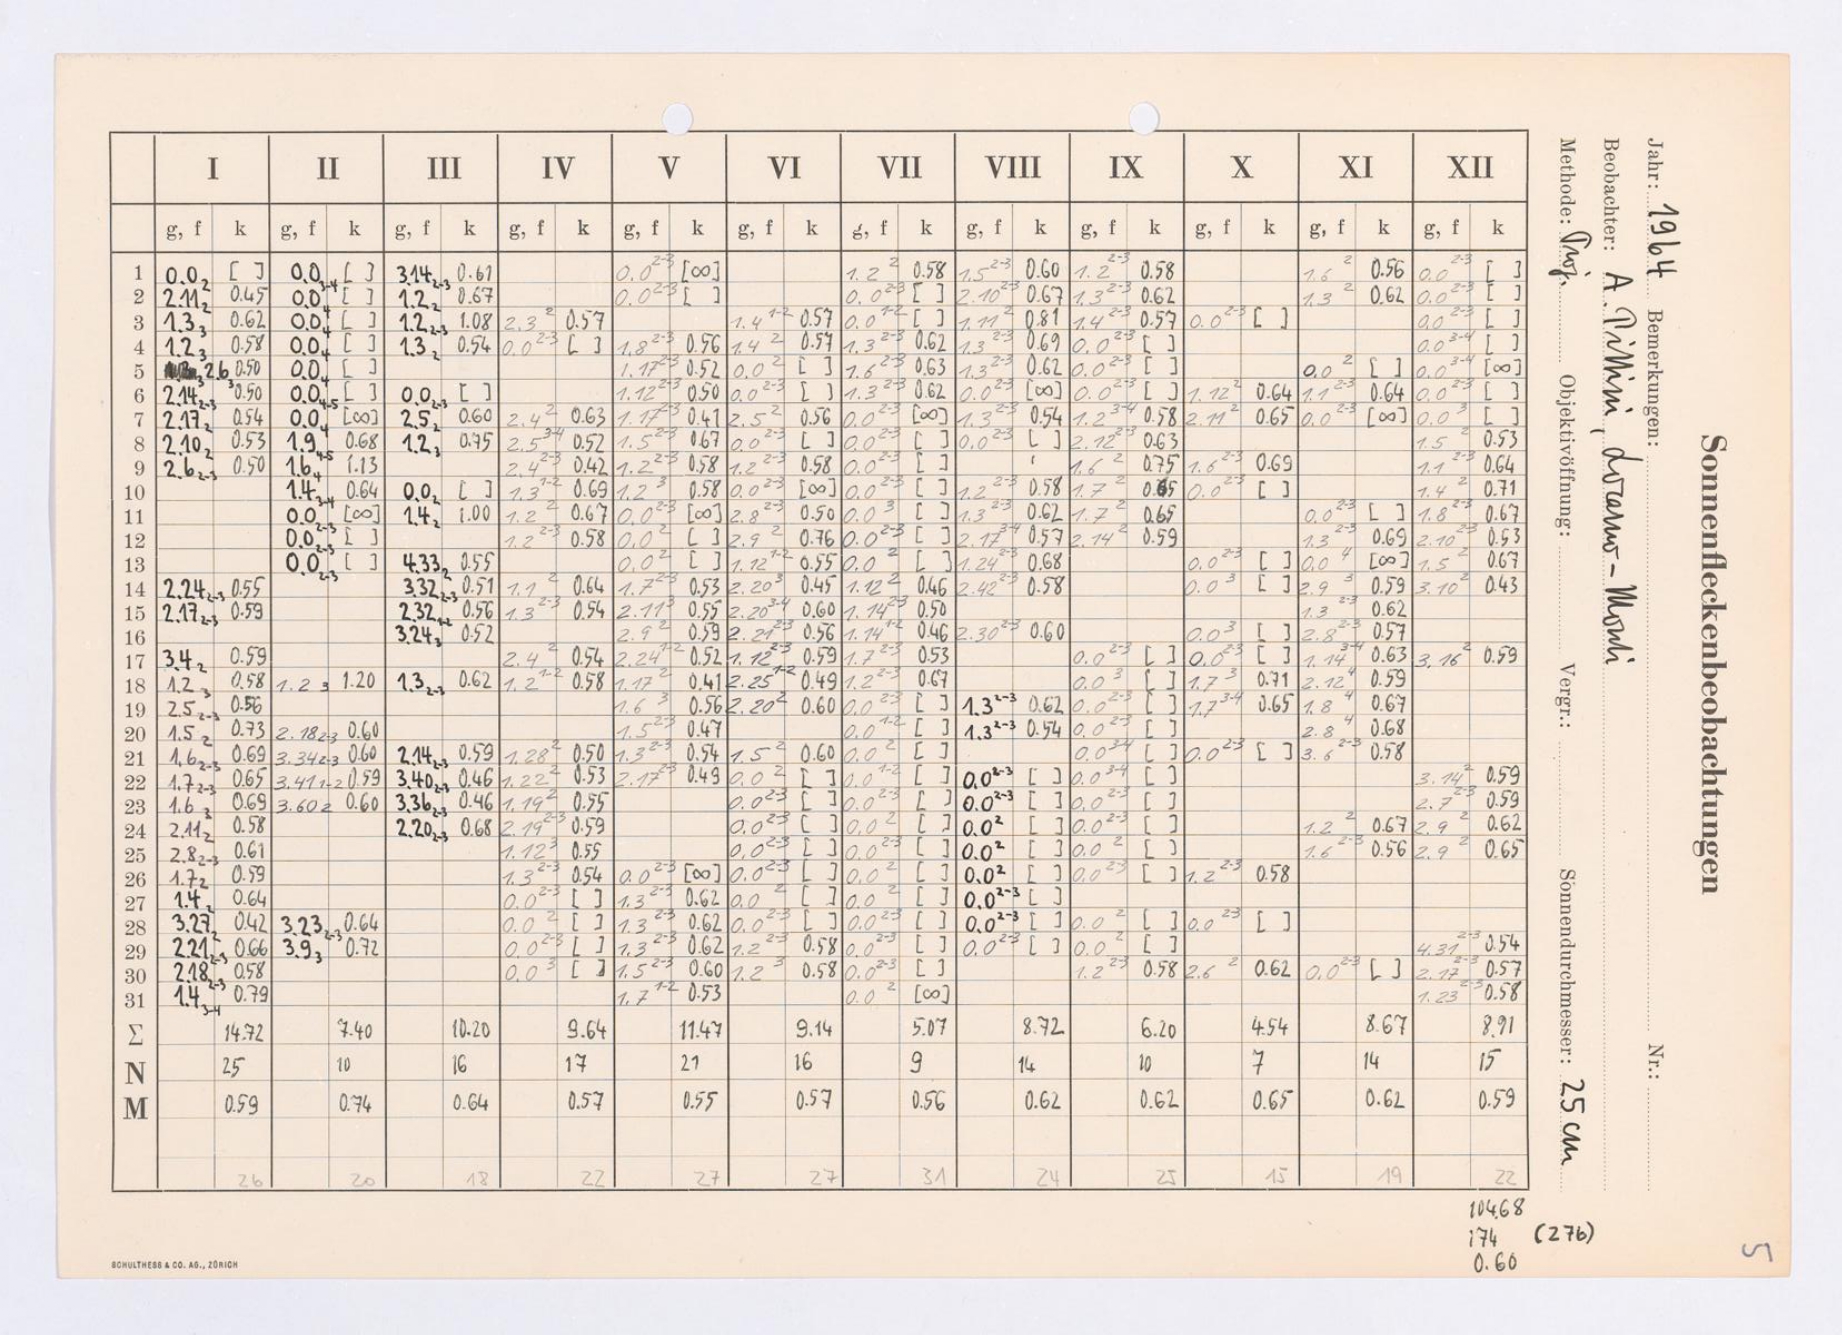 I II III IV V VI VII VIII IX X XI XII
g, f k g, f k g, f k g, f k g, f k g, f k g, f k g, f k g, f k g, f k g, f k g, f k
1 0.0 2 [ ] 0.0 3-4 [ ] 3.14 2-3 0.61 0.0 2-3 [∞] 1.2 2 0.58 1.5 2-3 0.60 1.2 2-3 0.58 1.6 2 0.56 0.0 2-3 [ ]
2 2.11 2 0.45 0.0 4 [ ] 1.2 2 0.67 0.0 2-3 [ ] 0.0 2-3 [ ] 2.10 2-3 0.67 1.3 2-3 0.62 1.3 2 0.62 0.0 2-3 [ ]
3 1.3 3 0.62 0.0 4 [ ] 1.2 2-3 1.08 2.3 2 0.57 1.4 1-2 0.57 0.0 1-2 [ ] 1.11 2 0.81 1.4 2-3 0.57 0.0 2-3 [ ] 0.0 2-3 [ ]
4 1.2 3 0.58 0.0 4 [ ] 1.3 2 0.54 0.0 2-3 [ ] 1.8 2-3 0.56 1.4 2 0.57 1.3 2-3 0.62 1.3 2-3 0.69 0.0 2-3 [ ] 0.0 3-4 [ ]
5 2.6 3 0.50 0.0 4 [ ] 1.17 2-3 0.52 0.0 2 [ ] 1.6 2-3 0.63 1.3 2-3 0.62 0.0 2-3 [ ] 0.0 2 [ ] 0.0 3-4 [∞]
6 2.14 2-3 0.50 0.0 4-5 [ ] 0.0 2-3 [ ] 1.12 2-3 0.50 0.0 2-3 [ ] 1.3 2-3 0.62 0.0 2-3 [∞] 0.0 2-3 [ ] 1.12 2 0.64 1.1 2-3 0.64 0.0 2 [ ]
7 2.17 2 0.54 0.0 4 [∞] 2.5 2 0.60 2.4 2 0.63 1.17 2-3 0.41 2.5 2 0.56 0.0 2-3 [∞] 1.3 2-3 0.54 1.2 3-4 0.58 2.11 2 0.65 0.0 2-3 [∞] 0.0 3 [ ]
8 2.10 2 0.53 1.9 4-5 0.68 1.2 3 0.75 2.5 3-4 0.52 1.5 2-3 0.67 0.0 2-3 [ ] 0.0 2-3 [ ] 0.0 2-3 [ ] 2.12 2-3 0.63 1.5 2 0.53
9 2.6 2-3 0.50 1.6 4 1.13 2.4 2-3 0.42 1.2 2-3 0.58 1.2 2-3 0.58 0.0 2-3 [ ] 1.6 2 0.75 1.6 2-3 0.69 1.1 2-3 0.64
10 1.4 3-4 0.64 0.0 2 [ ] 1.3 1-2 0.69 1.2 3 0.58 0.0 2-3 [∞] 0.0 2-3 [ ] 1.2 2-3 0.58 1.7 2 0.65 0.0 2-3 [ ] 1.4 2 0.71
11 0.0 2-3 [∞] 1.4 2 1.00 1.2 2 0.67 0.0 2-3 [∞] 2.8 2-3 0.50 0.0 3 [ ] 1.3 2-3 0.62 1.7 2 0.65 0.0 2-3 [ ] 1.8 2-3 0.67
12 0.0 2-3 [ ] 1.2 2-3 0.58 0.0 2 [ ] 2.9 2 0.76 0.0 2-3 [ ] 2.17 3-4 0.57 2.14 2 0.59 1.3 2-3 0.69 2.10 2-3 0.53
13 0.0 2-3 [ ] 4.33 2 0.55 0.0 2 [ ] 1.12 1-2 0.55 0.0 2 [ ] 1.24 2-3 0.68 0.0 2-3 [ ] 0.0 4 [∞] 1.5 2 0.67
14 2.24 2-3 0.55 3.32 2-3 0.51 1.1 2 0.64 1.7 2-3 0.53 2.20 3 0.45 1.12 2 0.46 2.42 2-3 0.58 0.0 3 [ ] 2.9 3 0.59 3.10 2 0.43
15 2.17 2-3 0.59 2.32 1-2 0.56 1.3 2-3 0.54 2.11 3 0.55 2.20 3-4 0.60 1.14 2-3 0.50 1.3 2-3 0.62
16 3.24 3 0.52 2.9 2 0.59 2.21 2-3 0.56 1.14 1-2 0.46 2.30 2-3 0.60 0.0 3 [ ] 2.8 2-3 0.57
17 3.4 2 0.59 2.4 2 0.54 2.24 1-2 0.52 1.12 2-3 0.59 1.7 2-3 0.53 0.0 2-3 [ ] 0.0 2-3 [ ] 1.14 3-4 0.63 3.16 2 0.59
18 1.2 3 0.58 1.2 3 1.20 1.3 2-3 0.62 1.2 1-2 0.58 1.17 2 0.41 2.25 1-2 0.49 1.2 2-3 0.67 0.0 3 [ ] 1.7 3 0.71 2.12 4 0.59
19 2.5 2-3 0.56 1.6 3 0.56 2.20 2 0.60 0.0 2-3 [ ] 1.3 2-3 0.62 0.0 2-3 [ ] 1.7 3-4 0.65 1.8 4 0.67
20 1.5 2 0.73 2.18 2-3 0.60 1.5 2-3 0.47 0.0 1-2 [ ] 1.3 2-3 0.54 0.0 2-3 [ ] 2.8 4 0.68
21 1.6 2-3 0.69 3.34 2-3 0.60 2.14 2-3 0.59 1.28 2 0.50 1.3 2-3 0.54 1.5 2 0.60 0.0 2 [ ] 0.0 3-4 [ ] 0.0 2-3 [ ] 3.6 2-3 0.58
22 1.7 2-3 0.65 3.41 1-2 0.59 3.40 2-3 0.46 1.22 2 0.53 2.17 2-3 0.49 0.0 2 [ ] 0.0 1-2 [ ] 0.0 2-3 [ ] 0.0 3-4 [ ] 3.14 2 0.59
23 1.6 3 0.69 3.60 2 0.60 3.36 2-3 0.46 1.19 2 0.55 0.0 2-3 [ ] 0.0 2-3 [ ] 0.0 2-3 [ ] 0.0 2-3 [ ] 2.7 2-3 0.59
24 2.11 2 0.58 2.20 2-3 0.68 2.19 2-3 0.59 0.0 2-3 [ ] 0.0 2 [ ] 0.0 2 [ ] 0.0 2-3 [ ] 1.2 2 0.67 2.9 2 0.62
25 2.8 2-3 0.61 1.12 3 0.55 0.0 2-3 [ ] 0.0 2-3 [ ] 0.0 2 [ ] 0.0 2 [ ] 1.6 2-3 0.56 2.9 2 0.65
26 1.7 2 0.59 1.3 2-3 0.54 0.0 2-3 [∞] 0.0 2-3 [ ] 0.0 2 [ ] 0.0 2 [ ] 0.0 2-3 [ ] 1.2 2-3 0.58
27 1.4 2 0.64 0.0 2-3 [ ] 1.3 2-3 0.62 0.0 2 [ ] 0.0 2 [ ] 0.0 2-3 [ ]
28 3.27 2 0.42 3.23 2-3 0.64 0.0 2 [ ] 1.3 2-3 0.62 0.0 2-3 [ ] 0.0 2-3 [ ] 0.0 2-3 [ ] 0.0 2 [ ] 0.0 2-3 [ ]
29 2.21 2-3 0.66 3.9 3 0.72 0.0 2-3 [ ] 1.3 2-3 0.62 1.2 2-3 0.58 0.0 2-3 [ ] 0.0 2-3 [ ] 0.0 2 [ ] 4.31 2-3 0.54
30 2.18 2-3 0.58 0.0 3 [ ] 1.5 2-3 0.60 1.2 3 0.58 0.0 2-3 [ ] 1.2 2-3 0.58 2.6 2 0.62 0.0 2-3 [ ] 2.17 2-3 0.57
31 1.4 3-4 0.79 1.7 1-2 0.53 0.0 2 [∞] 1.23 2-3 0.58
Σ 14.72 7.40 10.20 9.64 11.47 9.14 5.07 8.72 6.20 4.54 8.67 8.91
N 25 10 16 17 21 16 9 14 10 7 14 15
M 0.59 0.74 0.64 0.57 0.55 0.57 0.56 0.62 0.62 0.65 0.62 0.59
26 20 18 22 27 27 31 24 25 15 19 22
104.68
174 (276)
0.60
SCHULTHESS & CO. AG., ZÜRICH
Sonnenfleckenbeobachtungen
Jahr: 1964 Bemerkungen: Nr.:
Beobachter: A. Pittini, Locarno-Monti
Methode: Proj. Objektivöffnung: Vergr.: Sonnendurchmesser: 25 cm
5